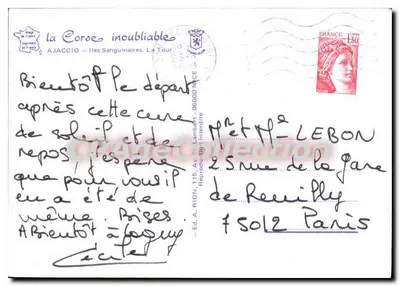 la Corse inoubliable
AJACCIO - Iles Sanguinaires. La Tour
Bientôt le départ
après cette cure
de soleil et de
repos, j'espère
que pour vous il
en a été de
même. Bises.
A Bientôt à Lagny
Cécile
- Ed. A. RION, 115, Av. 06000 NICE -
Reproduction interdite
FRANCE
1,30
Mr et Me LEBON
25 rue de la gare
de Reuilly
75012 Paris